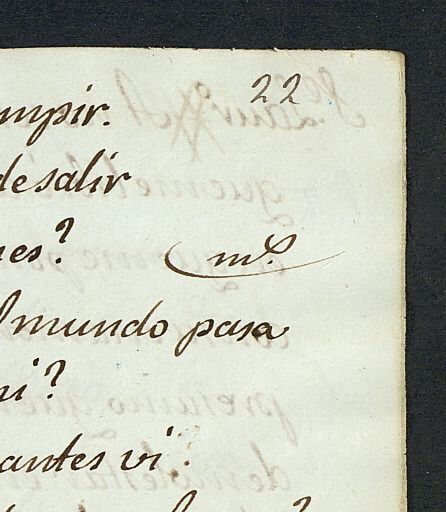 22
mpir.
de salir
nes? ms.
l mundo pasa
mi?
antes vi.